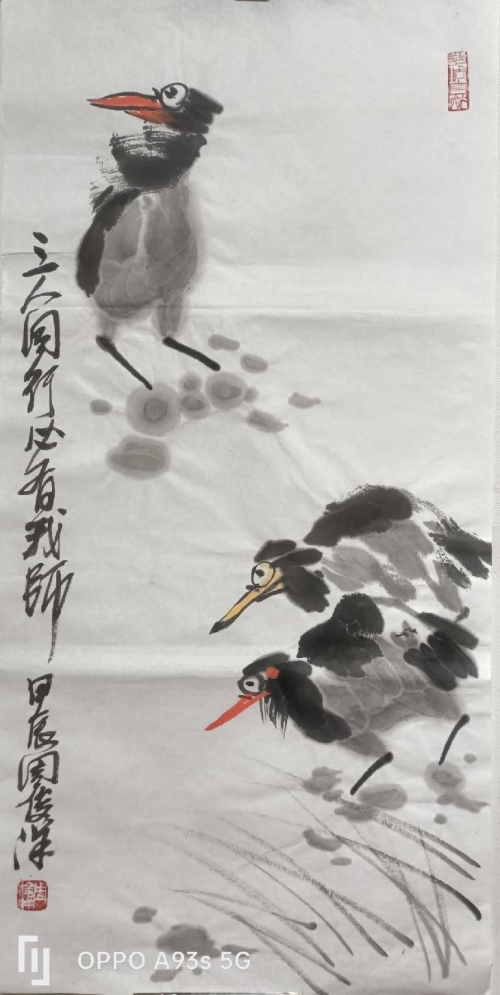 三人同行必有我師
甲辰周俊深
OPPO A93s 5G